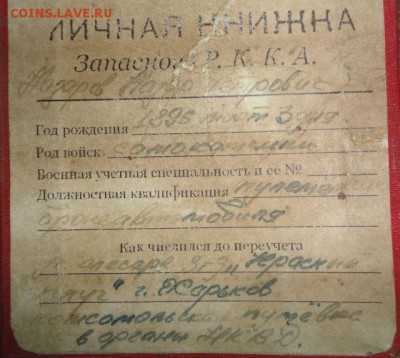 COINS.LAVE.RU
ЛИЧНАЯ КНИЖКА
Запасного Р. К. К. А.
Назаров Петрович
Год рождения 1895
Род войск самокатчики
Военная учетная специальность и ее №
Должностная квалификация пулеметчик
бронеавтомобиля
Как числился до переучета
слесарь з-д „Красный
луч" г. Харьков
комсомольск путёвке
в органы НКВД.